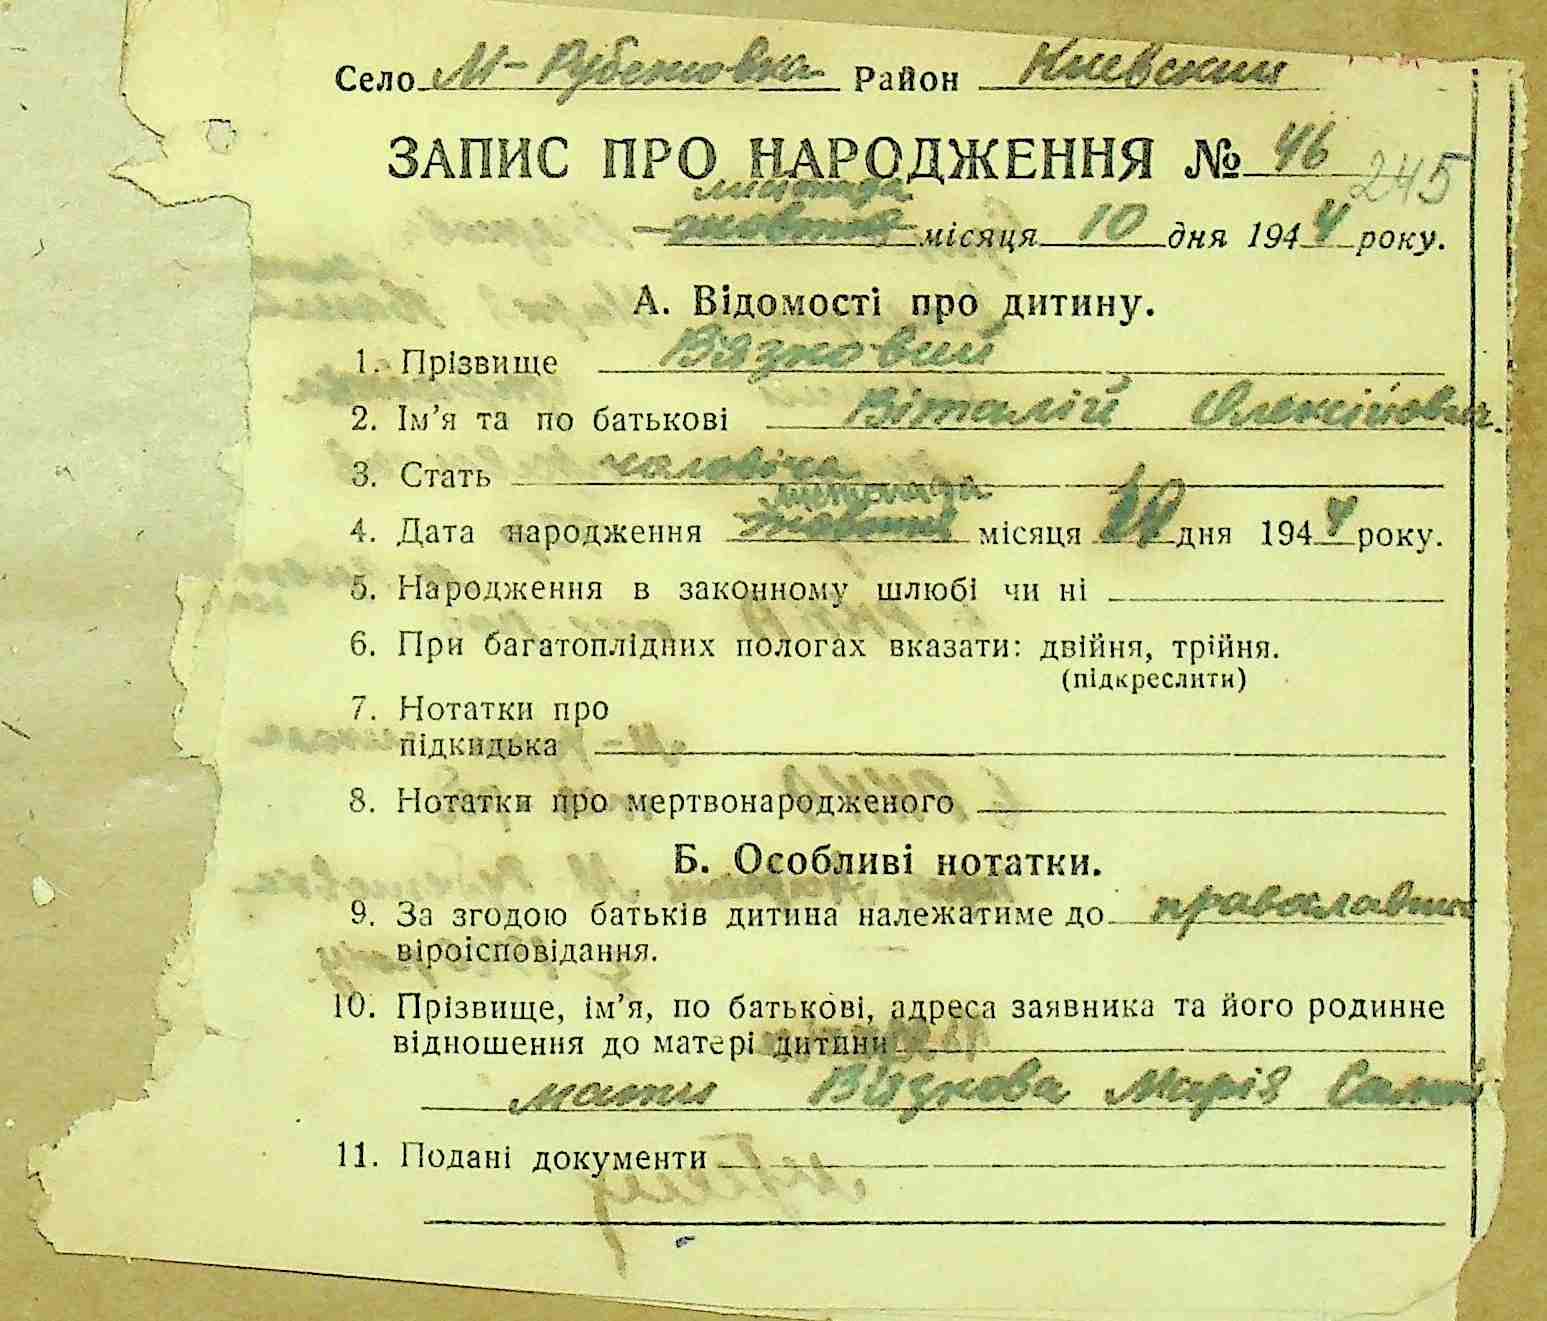 Село М-Рубетовка Район Киевский
ЗАПИС ПРО НАРОДЖЕННЯ № 46 245
листопада
жовтня місяця 10 дня 1944 року.
А. Відомості про дитину.
1. Прізвище Вязковий
2. Ім'я та по батькові Віталій Олексійович.
3. Стать чоловіча
листопада
4. Дата народження жовтня місяця 10 дня 1944 року.
5. Народження в законному шлюбі чи ні
6. При багатоплідних пологах вказати: двійня, трійня.
(підкреслити)
7. Нотатки про
підкидька
8. Нотатки про мертвонародженого
Б. Особливі нотатки.
9. За згодою батьків дитина належатиме до
віроісповідання.
10. Прізвище, ім'я, по батькові, адреса заявника та його родинне
відношення до матері дитини
мати Вязкова Марія
11. Подані документи